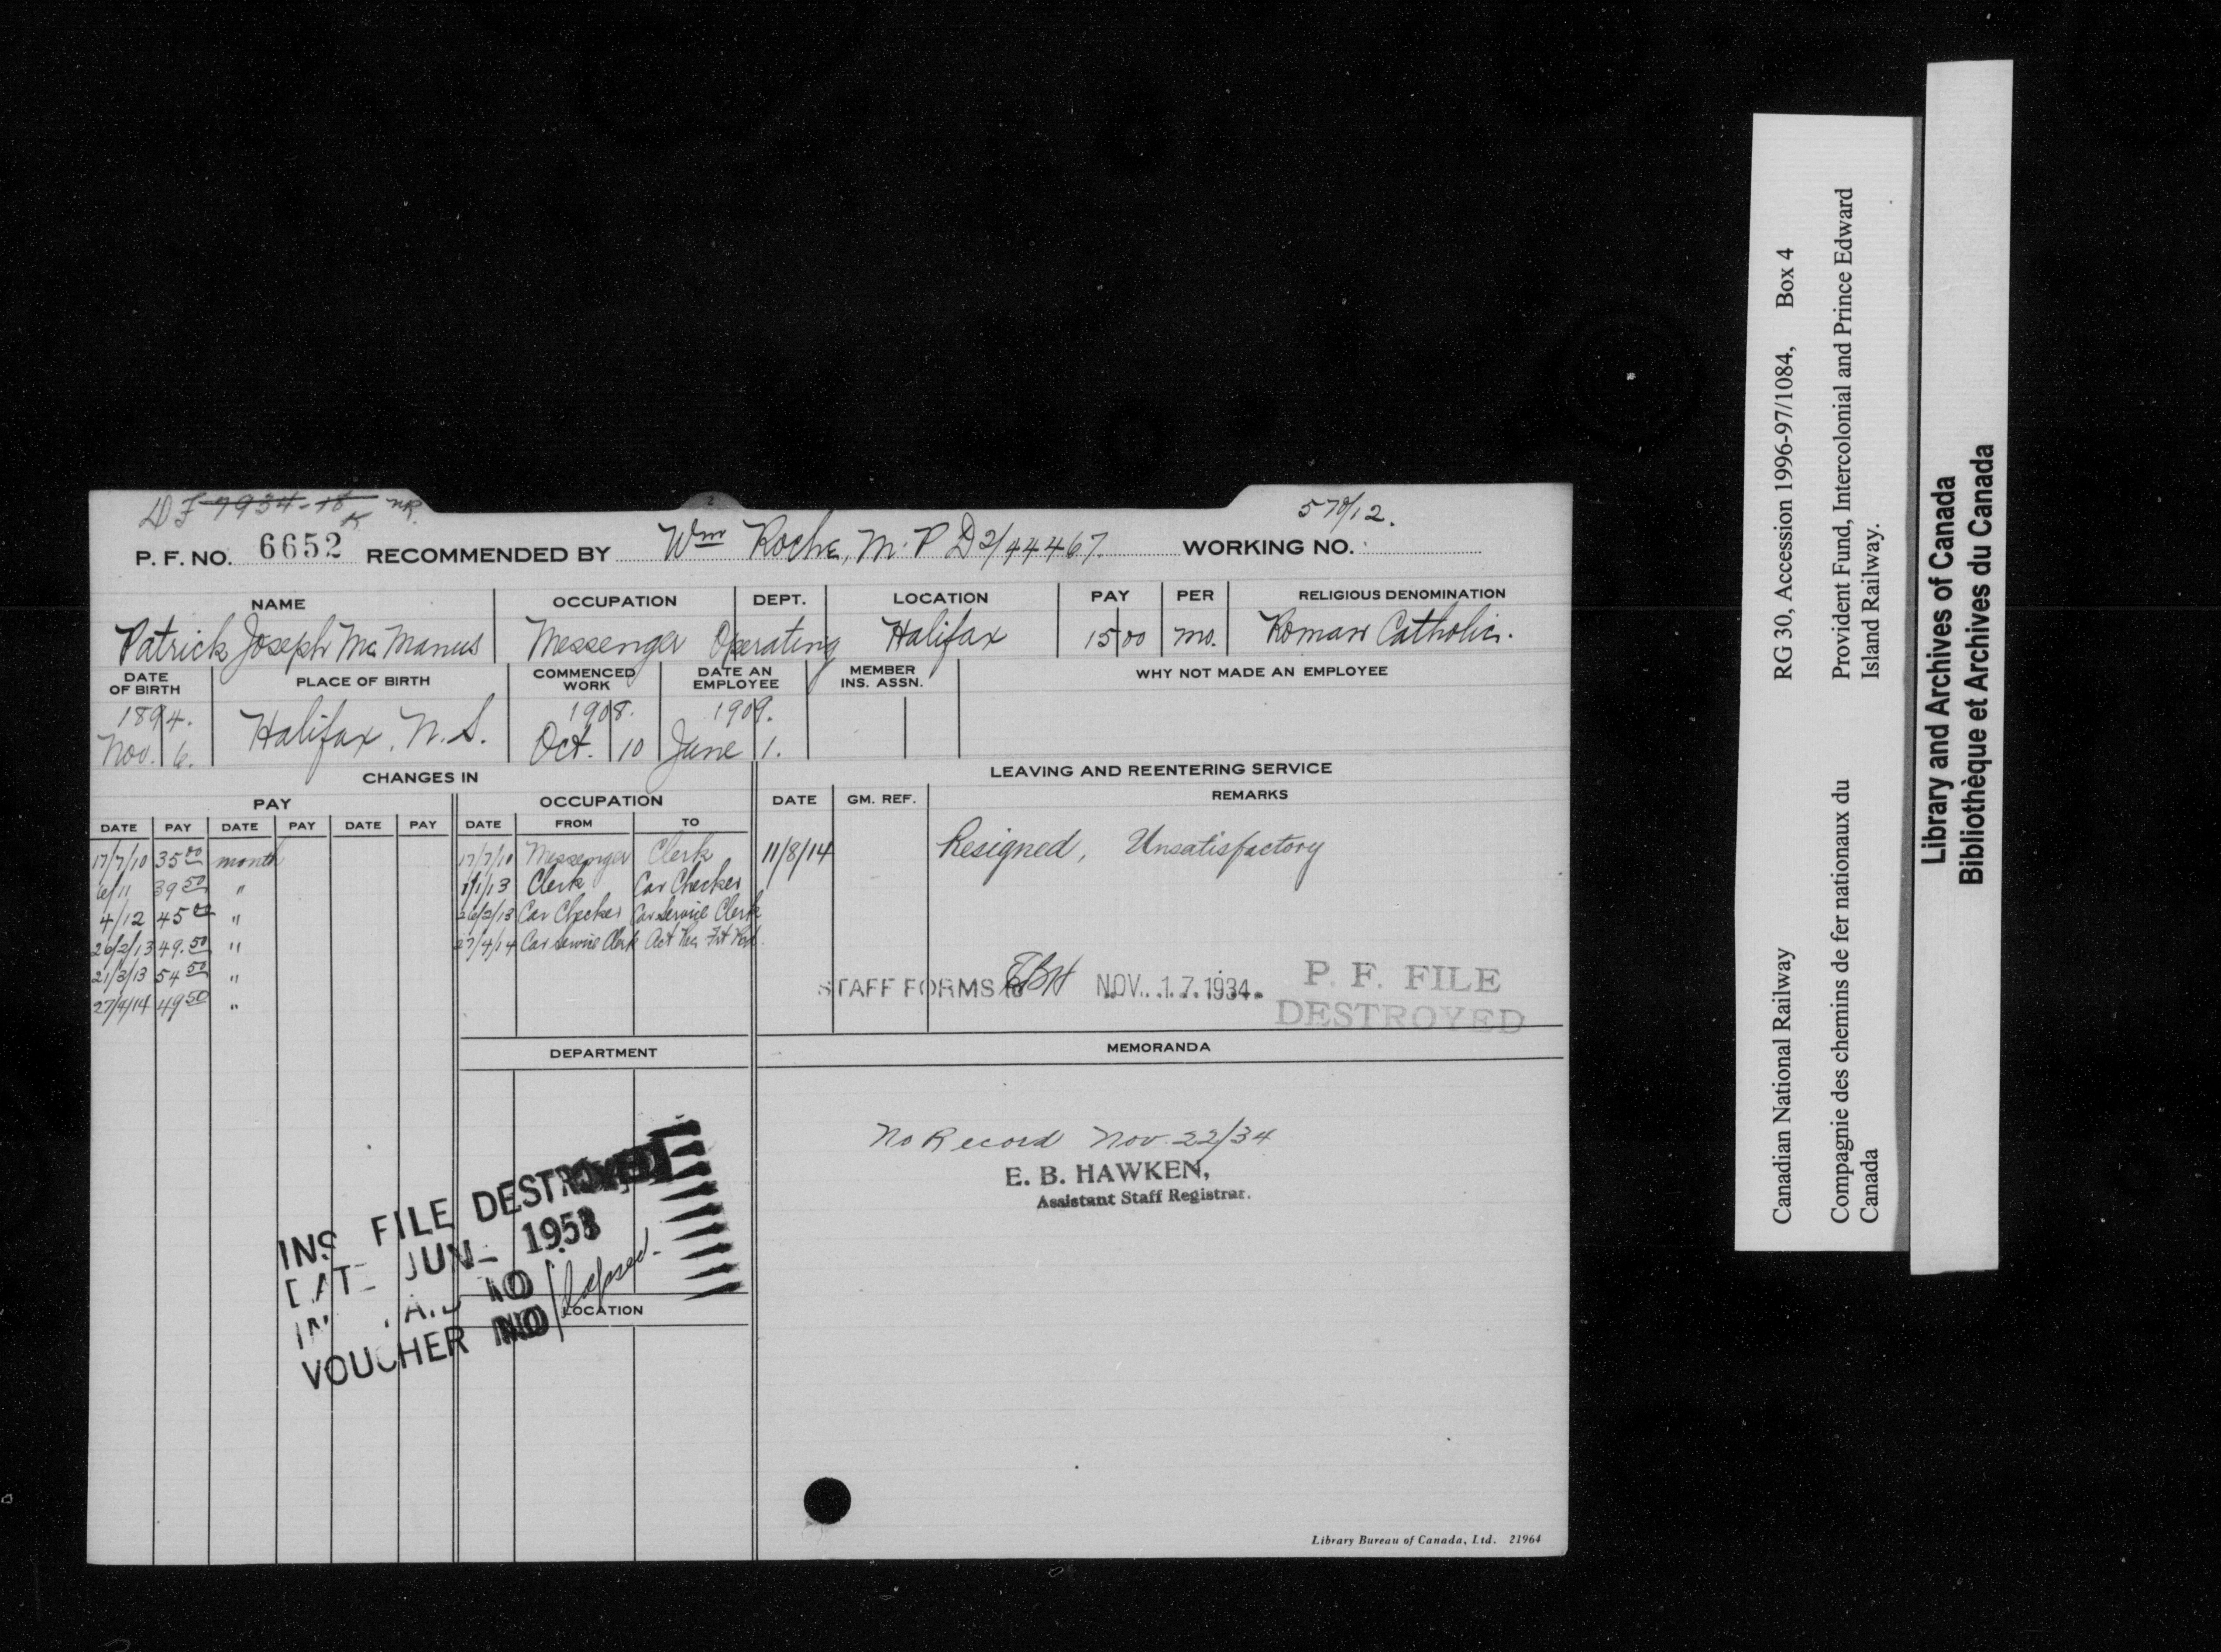 DF 7934-18 K NR.
570/12.
P. F. NO. 6652 RECOMMENDED BY Wm Roche, M.P D2/44467. WORKING NO.
NAME OCCUPATION DEPT. LOCATION PAY PER RELIGIOUS DENOMINATION
Patrick Joseph McManus Messenger Operating Halifax 15 00 mo. Roman Catholic.
DATE OF BIRTH PLACE OF BIRTH COMMENCED WORK DATE AN EMPLOYEE MEMBER INS. ASSN. WHY NOT MADE AN EMPLOYEE
1894. 1908. 1909.
Nov. 6. Halifax, N.S. Oct. 10 June 1.
CHANGES IN LEAVING AND REENTERING SERVICE
PAY OCCUPATION DATE GM. REF. REMARKS
DATE PAY DATE PAY DATE PAY DATE FROM TO
17/7/10 35 00 month 17/7/10 Messenger Clerk 11/8/14 Resigned, Unsatisfactory
6/11 39 50 " 1/1/13 Clerk Car Checker
4/12 45 00 " 26/2/13 Car Checker Car Service Clerk
26/2/13 49.50 " 27/4/14 Car Service Clerk Act
21/3/13 54 50 "
27/4/14 49 50 "
STAFF FORMS EBH NOV. 17. 1934. P. F. FILE
DESTROYED
DEPARTMENT MEMORANDA
No Record Nov. 22/34
E. B. HAWKEN,
Assistant Staff Registrar.
INS FILE DESTROYED
DATE JUN 1953
NO Lapsed.
VOUCHER NO
LOCATION
Library Bureau of Canada, Ltd. 21964
Canadian National Railway RG 30, Accession 1996-97/1084, Box 4
Compagnie des chemins de fer nationaux du Provident Fund, Intercolonial and Prince Edward
Canada Island Railway.
Library and Archives of Canada
Bibliothèque et Archives du Canada